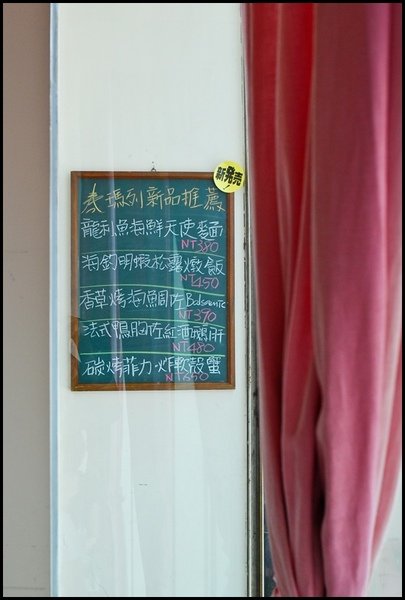 新発売
瑪列新品推薦
龍利魚海鮮天使麵
NT380
海鈎明蝦松露燉飯
NT450
香草烤海魚佐Balsamic
NT390
法式鴨胸佐紅酒鵝肝
NT480
碳烤菲力炸軟殼蟹
NT650